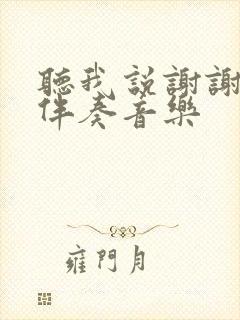 聽我説謝謝
伴奏音樂
雍門月